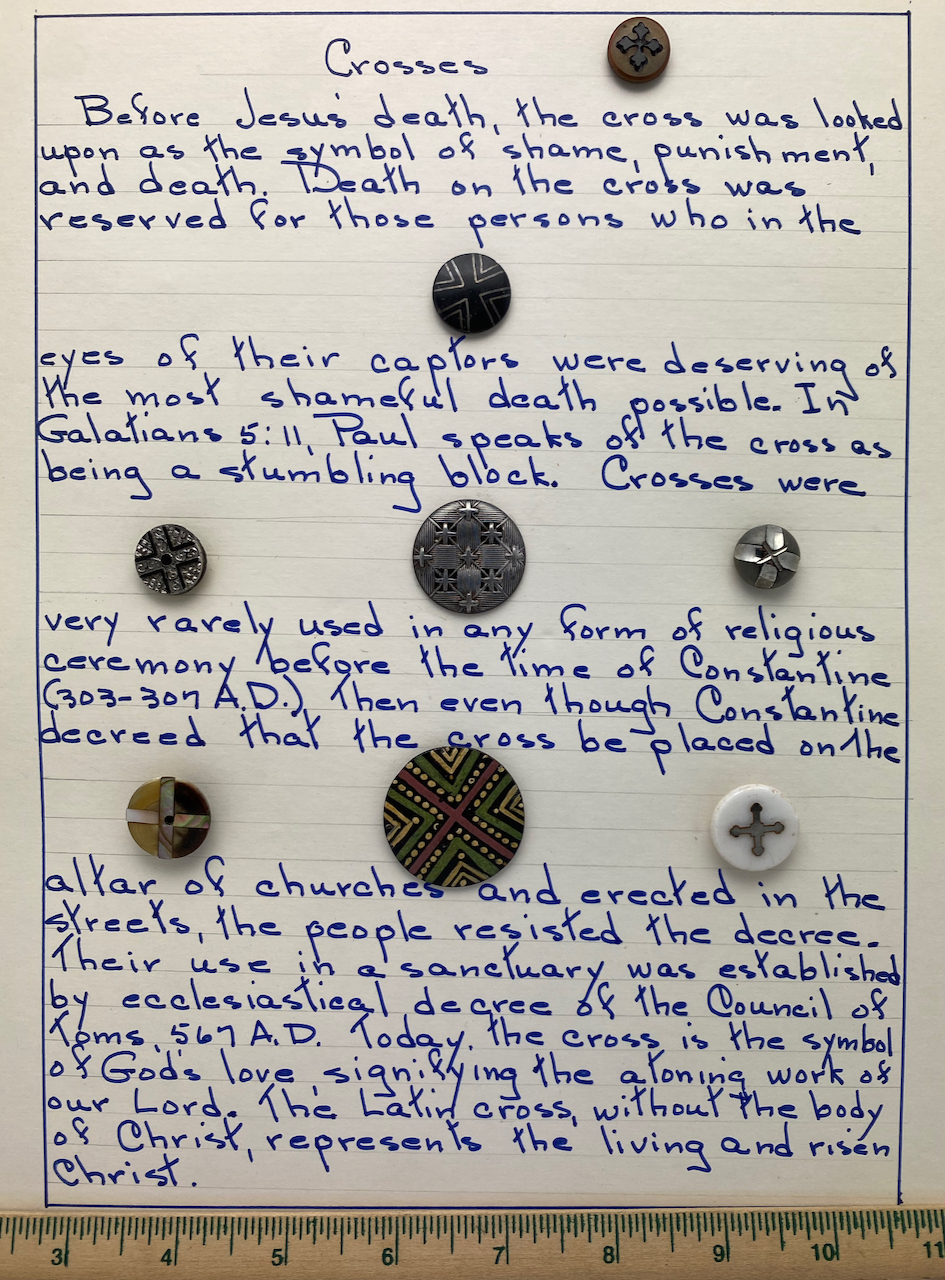 Crosses
Before Jesus' death, the cross was looked
upon as the symbol of shame, punishment,
and death. Death on the cross was
reserved for those persons who in the
eyes of their captors were deserving of
the most shameful death possible. In
Galatians 5:11, Paul speaks of the cross as
being a stumbling block. Crosses were
very rarely used in any form of religious
ceremony before the time of Constantine
(303-307 A.D.). Then even though Constantine
decreed that the cross be placed on the
altar of churches and erected in the
streets, the people resisted the decree.
Their use in a sanctuary was established
by ecclesiastical decree of the Council of
Toms, 567 A.D. Today, the cross is the symbol
of God's love, signifying the atoning work of
our Lord. The Latin cross, without the body
of Christ, represents the living and risen
Christ.
3 4 5 6 7 8 9 10 11